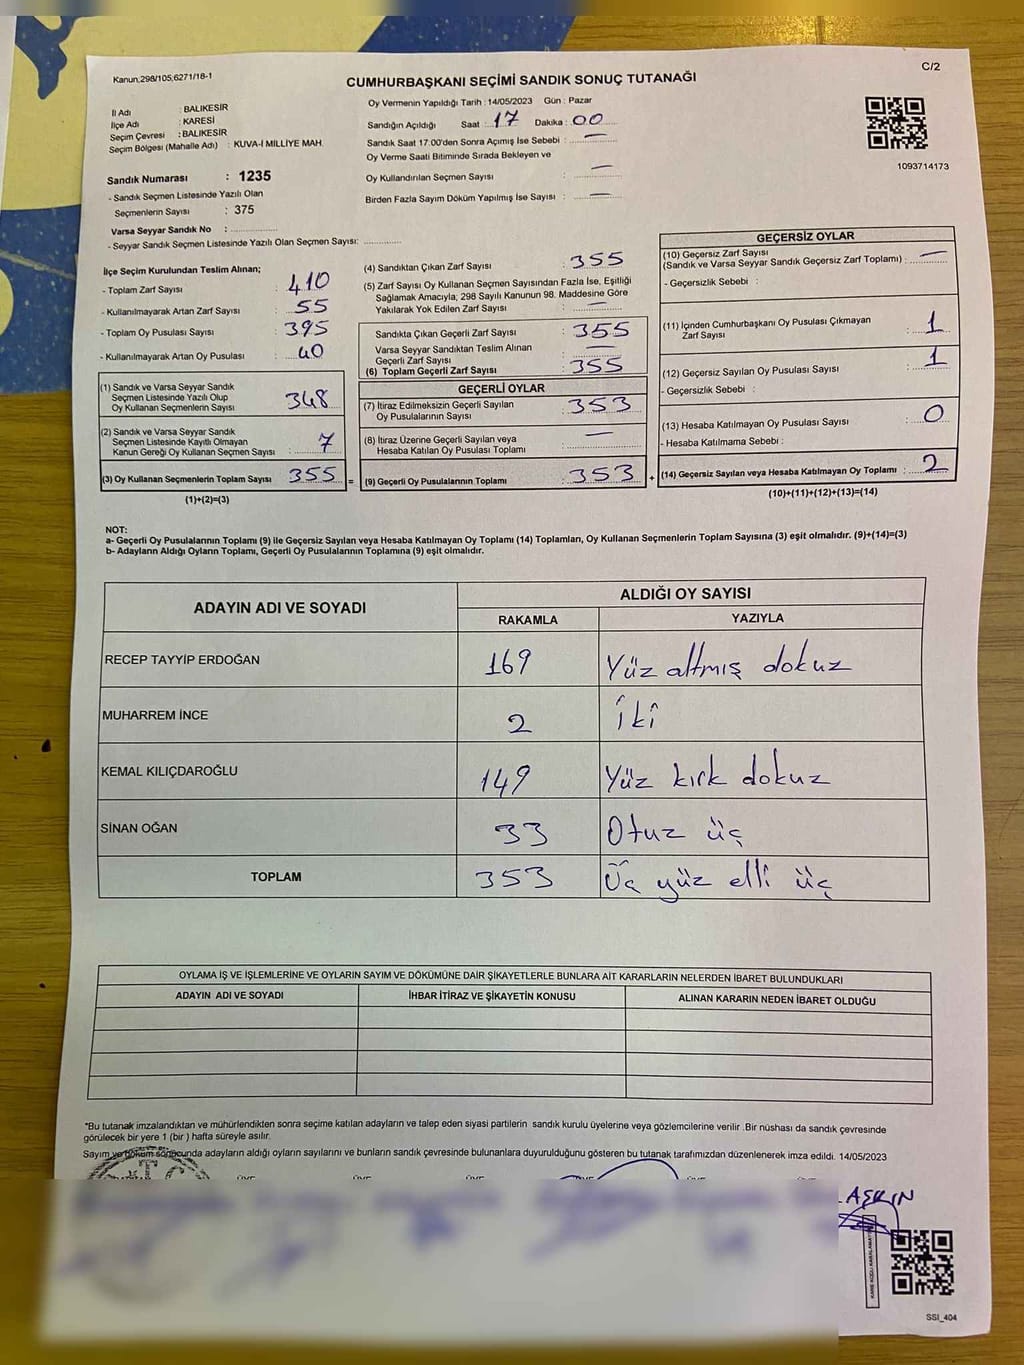 Kanun,298/105,6271/18-1
C/2
CUMHURBAŞKANI SEÇİMİ SANDIK SONUÇ TUTANAĞI
İl Adı : BALIKESİR
İlçe Adı : KARESİ
Seçim Çevresi : BALIKESİR
Seçim Bölgesi (Mahalle Adı) : KUVA-İ MİLLİYE MAH.
Oy Vermenin Yapıldığı Tarih : 14/05/2023 Gün : Pazar
Sandığın Açıldığı Saat : 17 Dakika : 00
Sandık Saat 17:00'den Sonra Açımış İse Sebebi : —
Oy Verme Saati Bitiminde Sırada Bekleyen ve
Oy Kullandırılan Seçmen Sayısı : —
Birden Fazla Sayım Döküm Yapılmış İse Sayısı : —
1093714173
Sandık Numarası : 1235
- Sandık Seçmen Listesinde Yazılı Olan
Seçmenlerin Sayısı : 375
Varsa Seyyar Sandık No :
- Seyyar Sandık Seçmen Listesinde Yazılı Olan Seçmen Sayısı:
İlçe Seçim Kurulundan Teslim Alınan;
- Toplam Zarf Sayısı : 410
- Kullanılmayarak Artan Zarf Sayısı : 55
- Toplam Oy Pusulası Sayısı : 395
- Kullanılmayarak Artan Oy Pusulası : 40
(1) Sandık ve Varsa Seyyar Sandık
Seçmen Listesinde Yazılı Olup
Oy Kullanan Seçmenlerin Sayısı 348
(2) Sandık ve Varsa Seyyar Sandık
Seçmen Listesinde Kayıtlı Olmayan
Kanun Gereği Oy Kullanan Seçmen Sayısı : 7
(3) Oy Kullanan Seçmenlerin Toplam Sayısı 355 =
(1)+(2)=(3)
(4) Sandıktan Çıkan Zarf Sayısı : 355
(5) Zarf Sayısı Oy Kullanan Seçmen Sayısından Fazla İse, Eşitliği
Sağlamak Amacıyla; 298 Sayılı Kanunun 98. Maddesine Göre
Yakılarak Yok Edilen Zarf Sayısı : —
Sandıkta Çıkan Geçerli Zarf Sayısı : 355
Varsa Seyyar Sandıktan Teslim Alınan
Geçerli Zarf Sayısı : —
(6) Toplam Geçerli Zarf Sayısı : 355
GEÇERLİ OYLAR
(7) İtiraz Edilmeksizin Geçerli Sayılan
Oy Pusulalarının Sayısı : 353
(8) İtiraz Üzerine Geçerli Sayılan veya
Hesaba Katılan Oy Pusulaları Toplamı : —
(9) Geçerli Oy Pusulalarının Toplamı : 353 +
GEÇERSİZ OYLAR
(10) Geçersiz Zarf Sayısı
(Sandık ve Varsa Seyyar Sandık Geçersiz Zarf Toplamı) : —
- Geçersizlik Sebebi :
(11) İçinden Cumhurbaşkanı Oy Pusulası Çıkmayan
Zarf Sayısı : 1
(12) Geçersiz Sayılan Oy Pusulası Sayısı : 1
- Geçersizlik Sebebi :
(13) Hesaba Katılmayan Oy Pusulası Sayısı : 0
- Hesaba Katılmama Sebebi :
(14) Geçersiz Sayılan veya Hesaba Katılmayan Oy Toplamı : 2
(10)+(11)+(12)+(13)=(14)
NOT:
a- Geçerli Oy Pusulalarının Toplamı (9) ile Geçersiz Sayılan veya Hesaba Katılmayan Oy Toplamı (14) Toplamları, Oy Kullanan Seçmenlerin Toplam Sayısına (3) eşit olmalıdır. (9)+(14)=(3)
b- Adayların Aldığı Oyların Toplamı, Geçerli Oy Pusulalarının Toplamına (9) eşit olmalıdır.
ADAYIN ADI VE SOYADI ALDIĞI OY SAYISI
RAKAMLA YAZIYLA
RECEP TAYYİP ERDOĞAN 169 Yüz altmış dokuz
MUHARREM İNCE 2 İki
KEMAL KILIÇDAROĞLU 149 Yüz kırk dokuz
SİNAN OĞAN 33 Otuz üç
TOPLAM 353 Üç yüz elli üç
OYLAMA İŞ VE İŞLEMLERİNE VE OYLARIN SAYIM VE DÖKÜMÜNE DAİR ŞİKAYETLERLE BUNLARA AİT KARARLARIN NELERDEN İBARET BULUNDUKLARI
ADAYIN ADI VE SOYADI İHBAR İTİRAZ VE ŞİKAYETİN KONUSU ALINAN KARARIN NEDEN İBARET OLDUĞU
*Bu tutanak imzalandıktan ve mühürlendikten sonra seçime katılan adayların ve talep eden siyasi partilerin sandık kurulu üyelerine veya gözlemcilerine verilir .Bir nüshası da sandık çevresinde
görülecek bir yere 1 (bir ) hafta süreyle asılır.
Sayım ve döküm sonucunda adayların aldığı oyların sayılarını ve bunların sandık çevresinde bulunanlara duyurulduğunu gösteren bu tutanak tarafımızdan düzenlenerek imza edildi. 14/05/2023
T.C.
SSİ_404